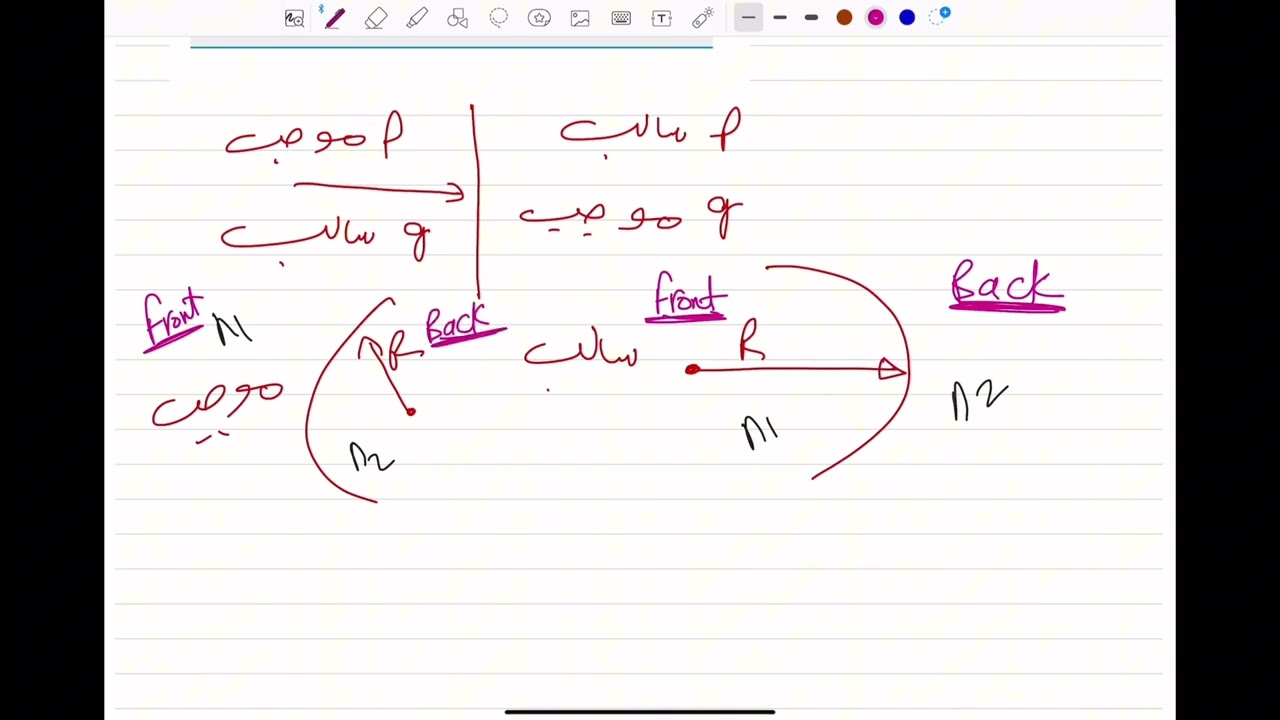 p موجب
p سالب
q سالب
q موجب
Front
n1
موجب
R
Back
n2
سالب
Front
R
n1
Back
n2